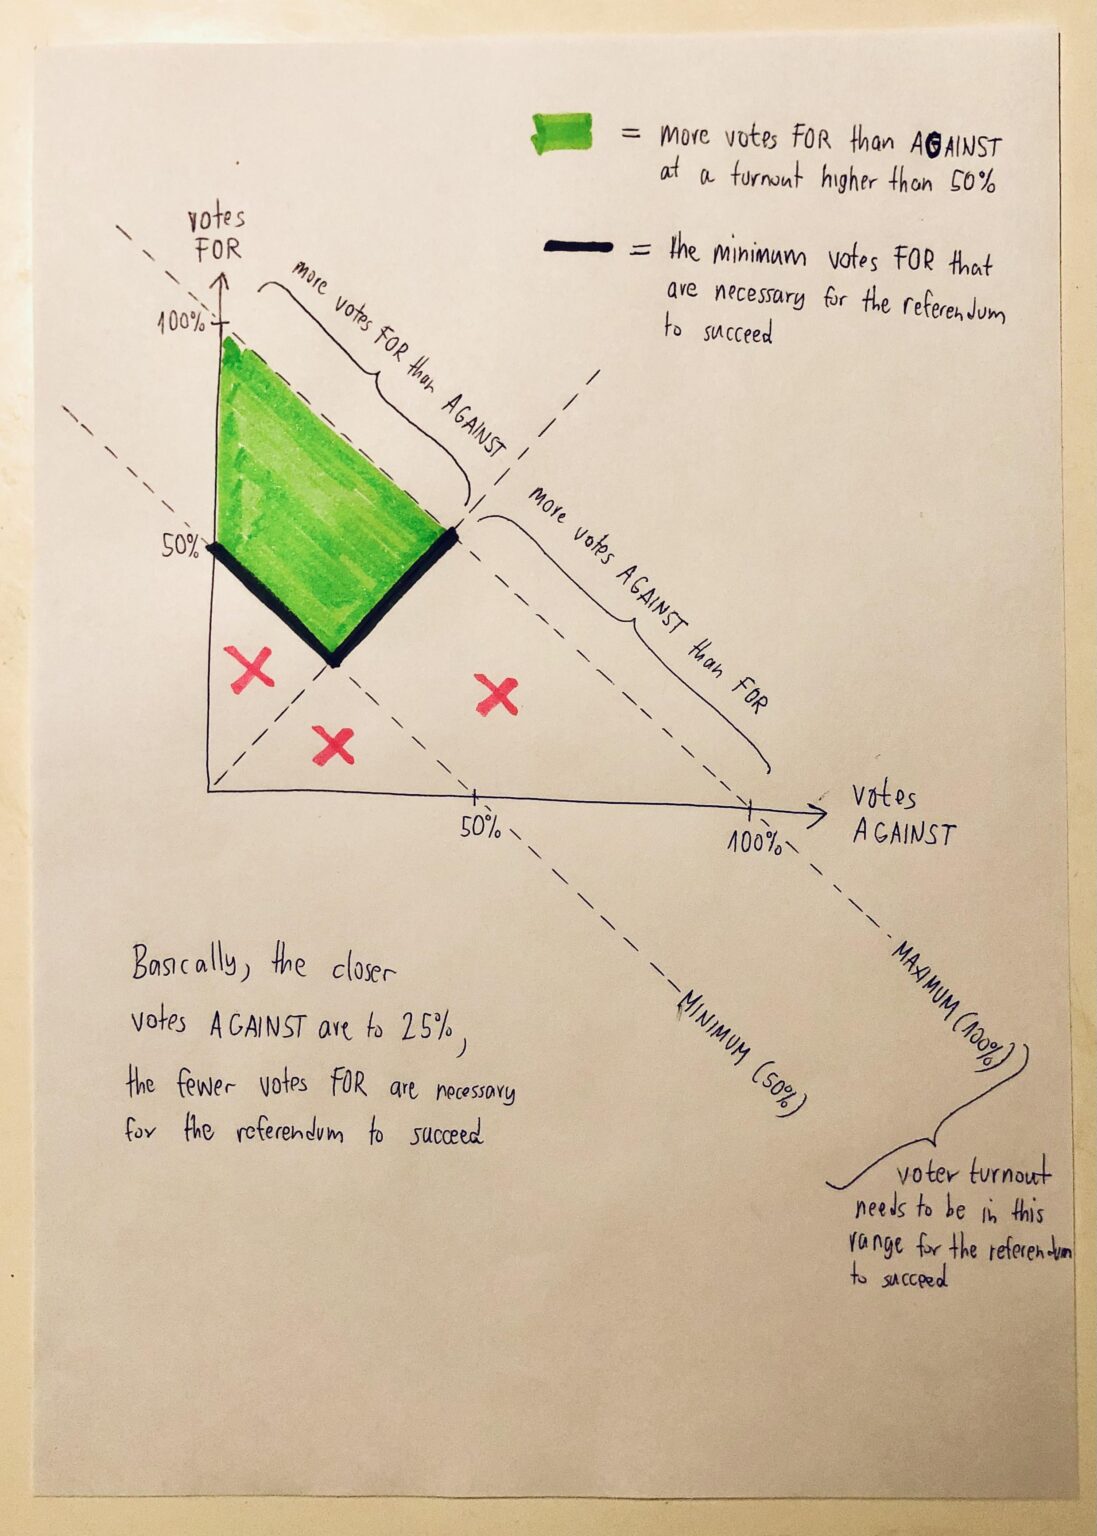 = more votes FOR than AGAINST
at a turnout higher than 50%
= the minimum votes FOR that
are necessary for the referendum
to succeed
votes
FOR
more votes FOR than AGAINST
100%
more votes AGAINST than FOR
50%
votes
AGAINST
50%
100%
Basically, the closer
votes AGAINST are to 25%,
the fewer votes FOR are necessary
for the referendum to succeed
MAXIMUM (100%)
MINIMUM (50%)
voter turnout
needs to be in this
range for the referendum
to succeed